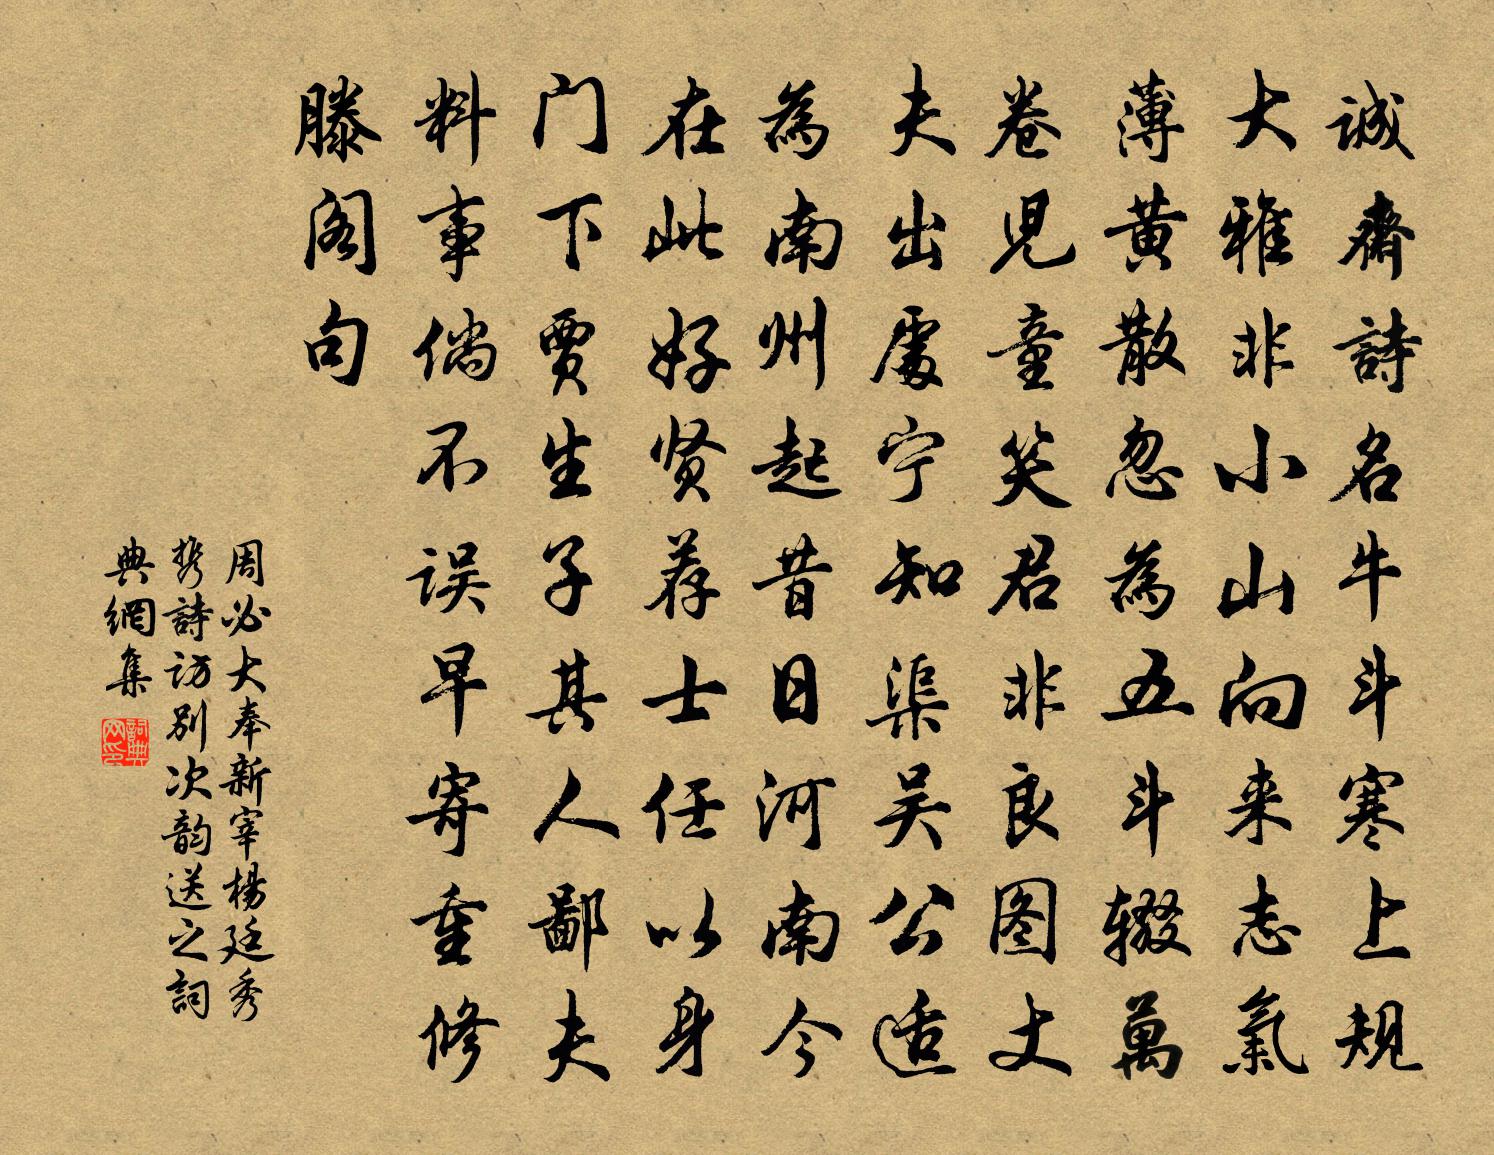 誠齋詩名牛斗寒上規
大雅非小山向来志氣
薄黄散忽為五斗辍萬
卷児童笑君非良图丈
夫出處宁知渠吴公适
為南州起昔日河南今
在此好贤荐士任以身
门下贾生子其人鄙夫
料事倘不误早寄重修
滕阁句
周必大奉新宰楊廷秀
携詩访别次韵送之詞
典網集
詞典网印